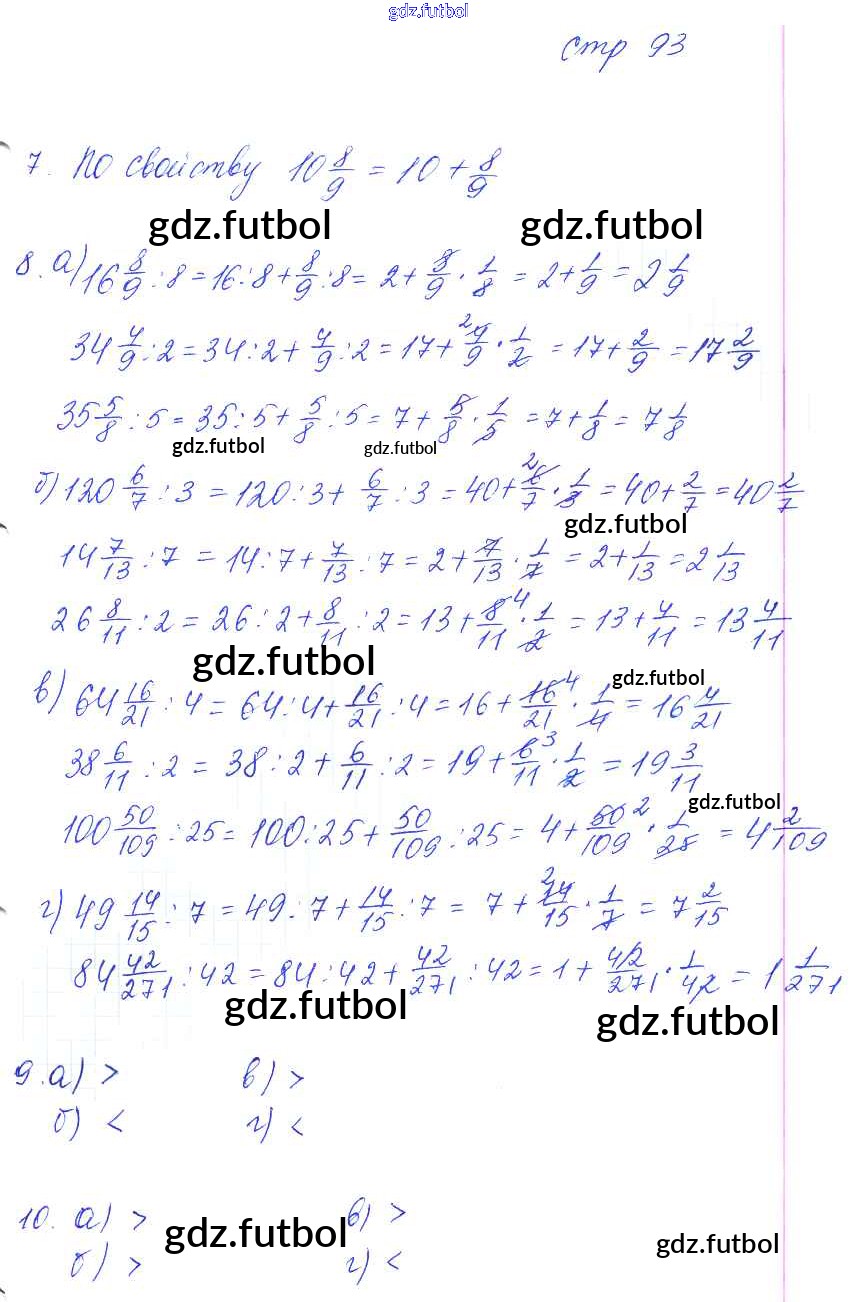 gdz.futbol
стр 93
7. По свойству 10 8/9 = 10 + 8/9
gdz.futbol gdz.futbol
8. а) 16 8/9 : 8 = 16 : 8 + 8/9 : 8 = 2 + 8/9 · 1/8 = 2 + 1/9 = 2 1/9
34 4/9 : 2 = 34 : 2 + 4/9 : 2 = 17 + 4/9 2 · 1/2 = 17 + 2/9 = 17 2/9
35 5/8 : 5 = 35 : 5 + 5/8 : 5 = 7 + 5/8 · 1/5 = 7 + 1/8 = 7 1/8
gdz.futbol gdz.futbol
б) 120 6/7 : 3 = 120 : 3 + 6/7 : 3 = 40 + 6/7 2 · 1/3 = 40 + 2/7 = 40 2/7
gdz.futbol
14 7/13 : 7 = 14 : 7 + 7/13 : 7 = 2 + 7/13 · 1/7 = 2 + 1/13 = 2 1/13
26 8/11 : 2 = 26 : 2 + 8/11 : 2 = 13 + 8/11 4 · 1/2 = 13 + 4/11 = 13 4/11
gdz.futbol gdz.futbol
в) 64 16/21 : 4 = 64 : 4 + 16/21 : 4 = 16 + 16/21 4 · 1/4 = 16 4/21
38 6/11 : 2 = 38 : 2 + 6/11 : 2 = 19 + 6/11 3 · 1/2 = 19 3/11
gdz.futbol
100 50/109 : 25 = 100 : 25 + 50/109 : 25 = 4 + 50/109 2 · 1/25 = 4 2/109
г) 49 14/15 : 7 = 49 : 7 + 14/15 : 7 = 7 + 14/15 2 · 1/7 = 7 2/15
84 42/271 : 42 = 84 : 42 + 42/271 : 42 = 1 + 42/271 · 1/42 = 1 1/271
gdz.futbol gdz.futbol
9. а) > в) >
б) < г) <
10. а) > в) >
gdz.futbol gdz.futbol
б) > г) <